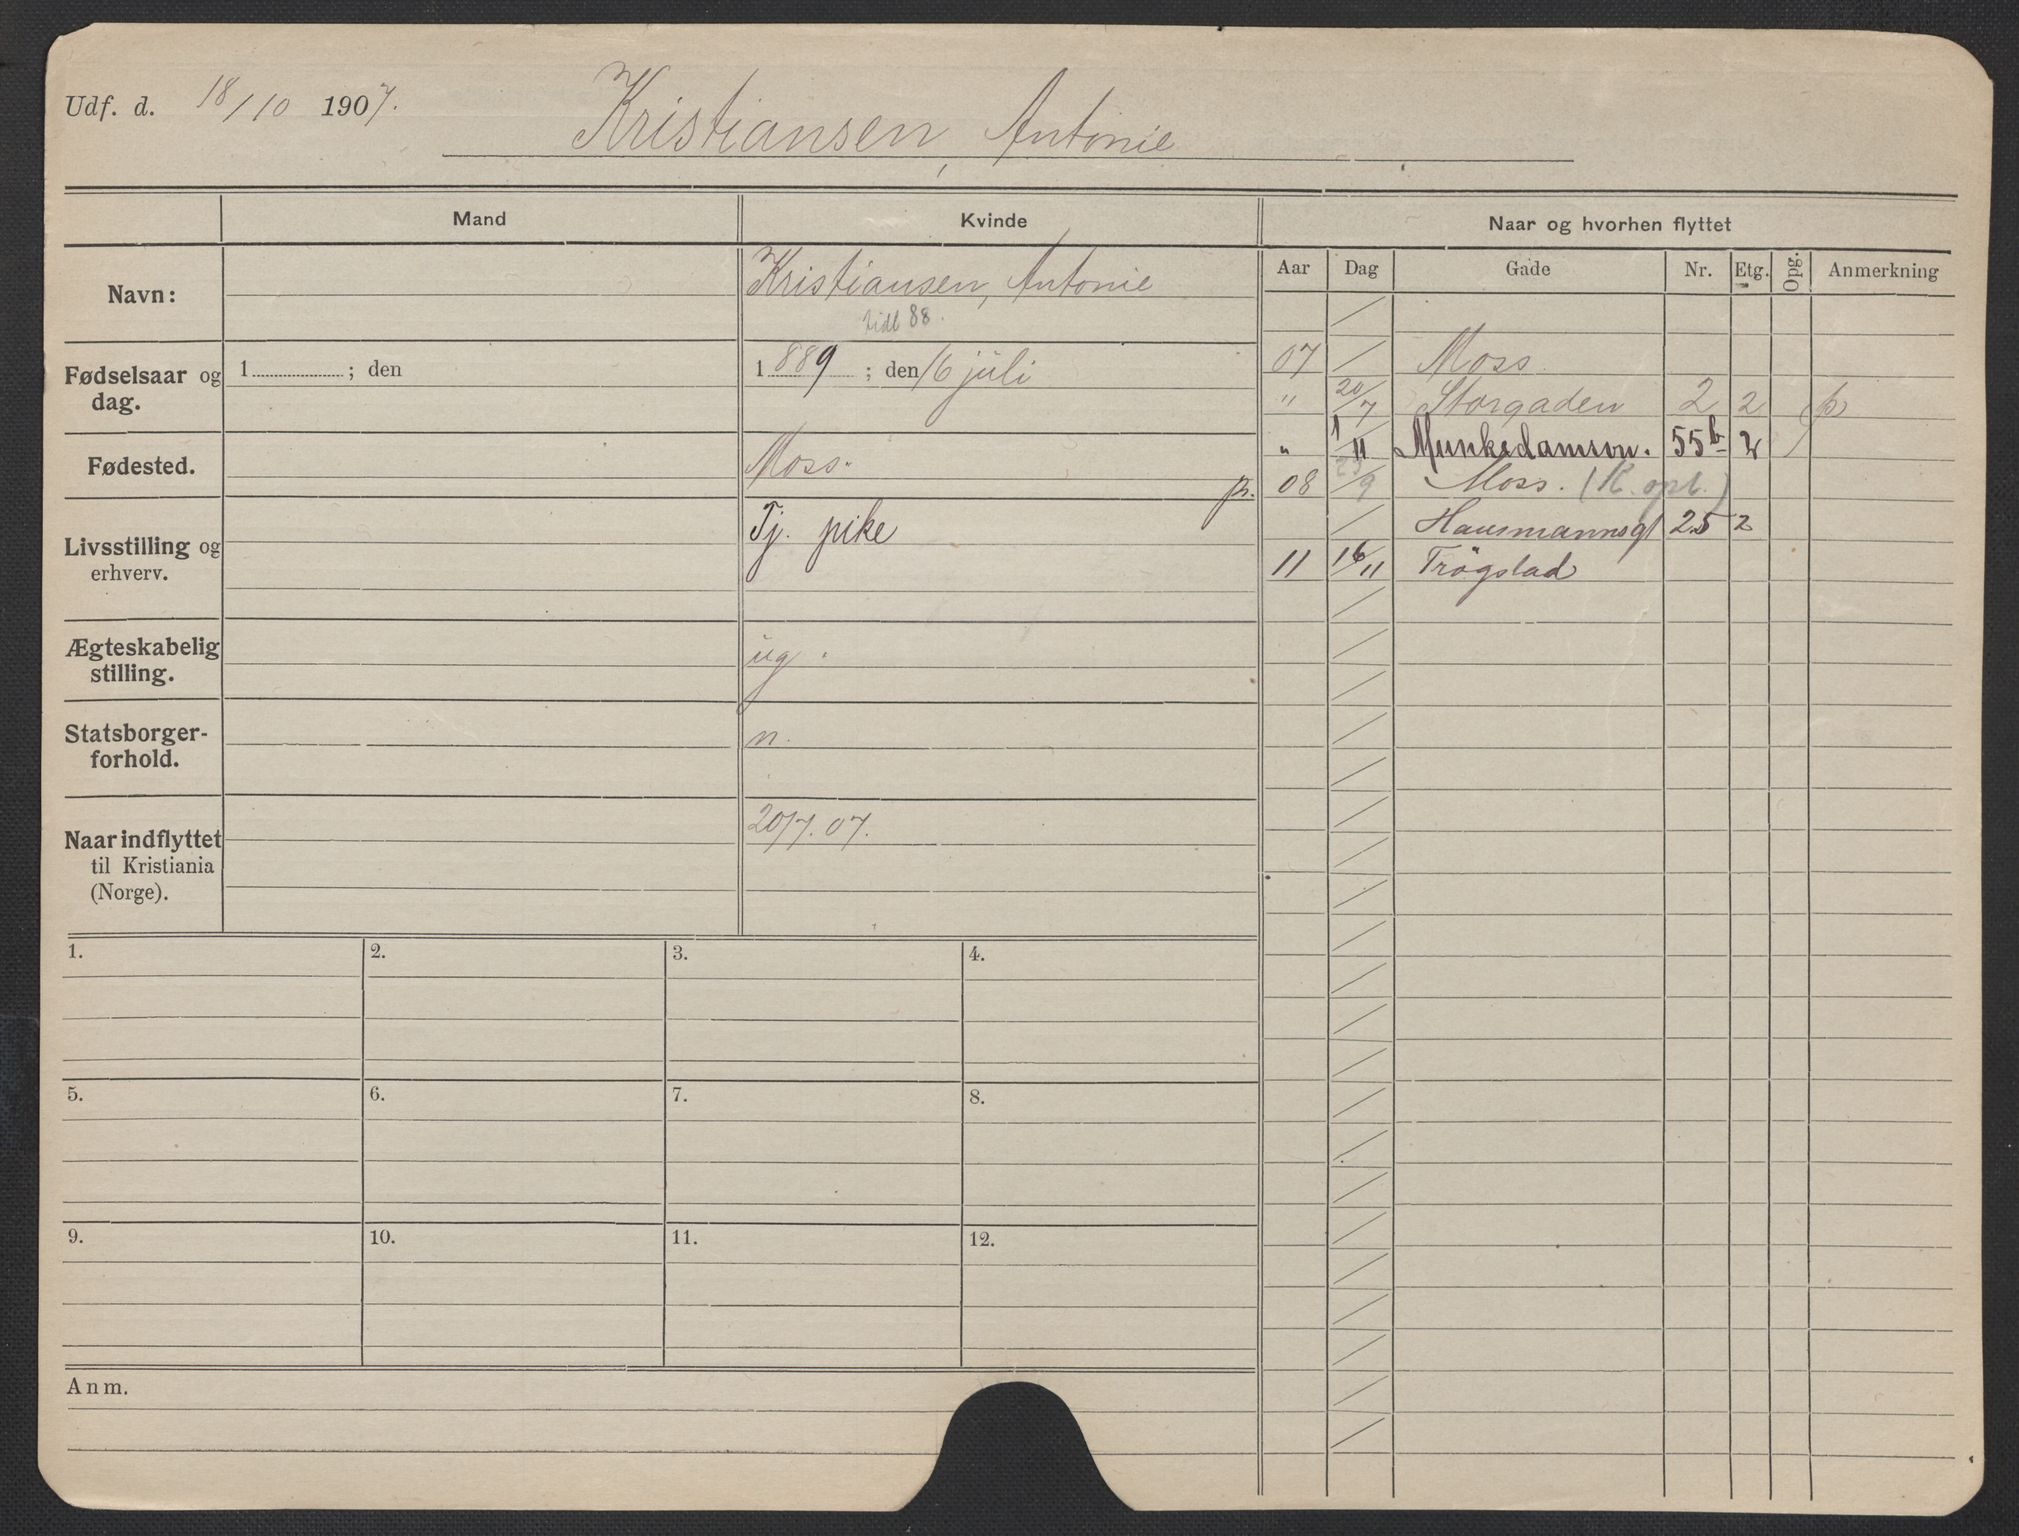 Udf. d. 18/10 1907.
Kristiansen, Antonie
Mand
Kvinde
Naar og hvorhen flyttet
Aar Dag Gade Nr. Etg. Opg. Anmerkning
Navn:
Kristiansen, Antonie
tidl 88.
Fødselsaar og dag.
1 ; den
1889 ; den 16 juli
Fødested.
Moss.
Livsstilling og
erhverv.
Tj. pike
p.
Ægteskabelig
stilling.
ug.
Statsborger-
forhold.
n.
Naar indflyttet
til Kristiania
(Norge).
20/7. 07.
07 / Moss.
" 20/7 Storgaden 2 2 p
" 1/11 Munkedamsv. 55b 2
08 23/9 Moss. (K. opl.)
/ Hausmannsgt 25 2
11 16/11 Trøgstad
1. 2. 3. 4.
5. 6. 7. 8.
9. 10. 11. 12.
Anm.